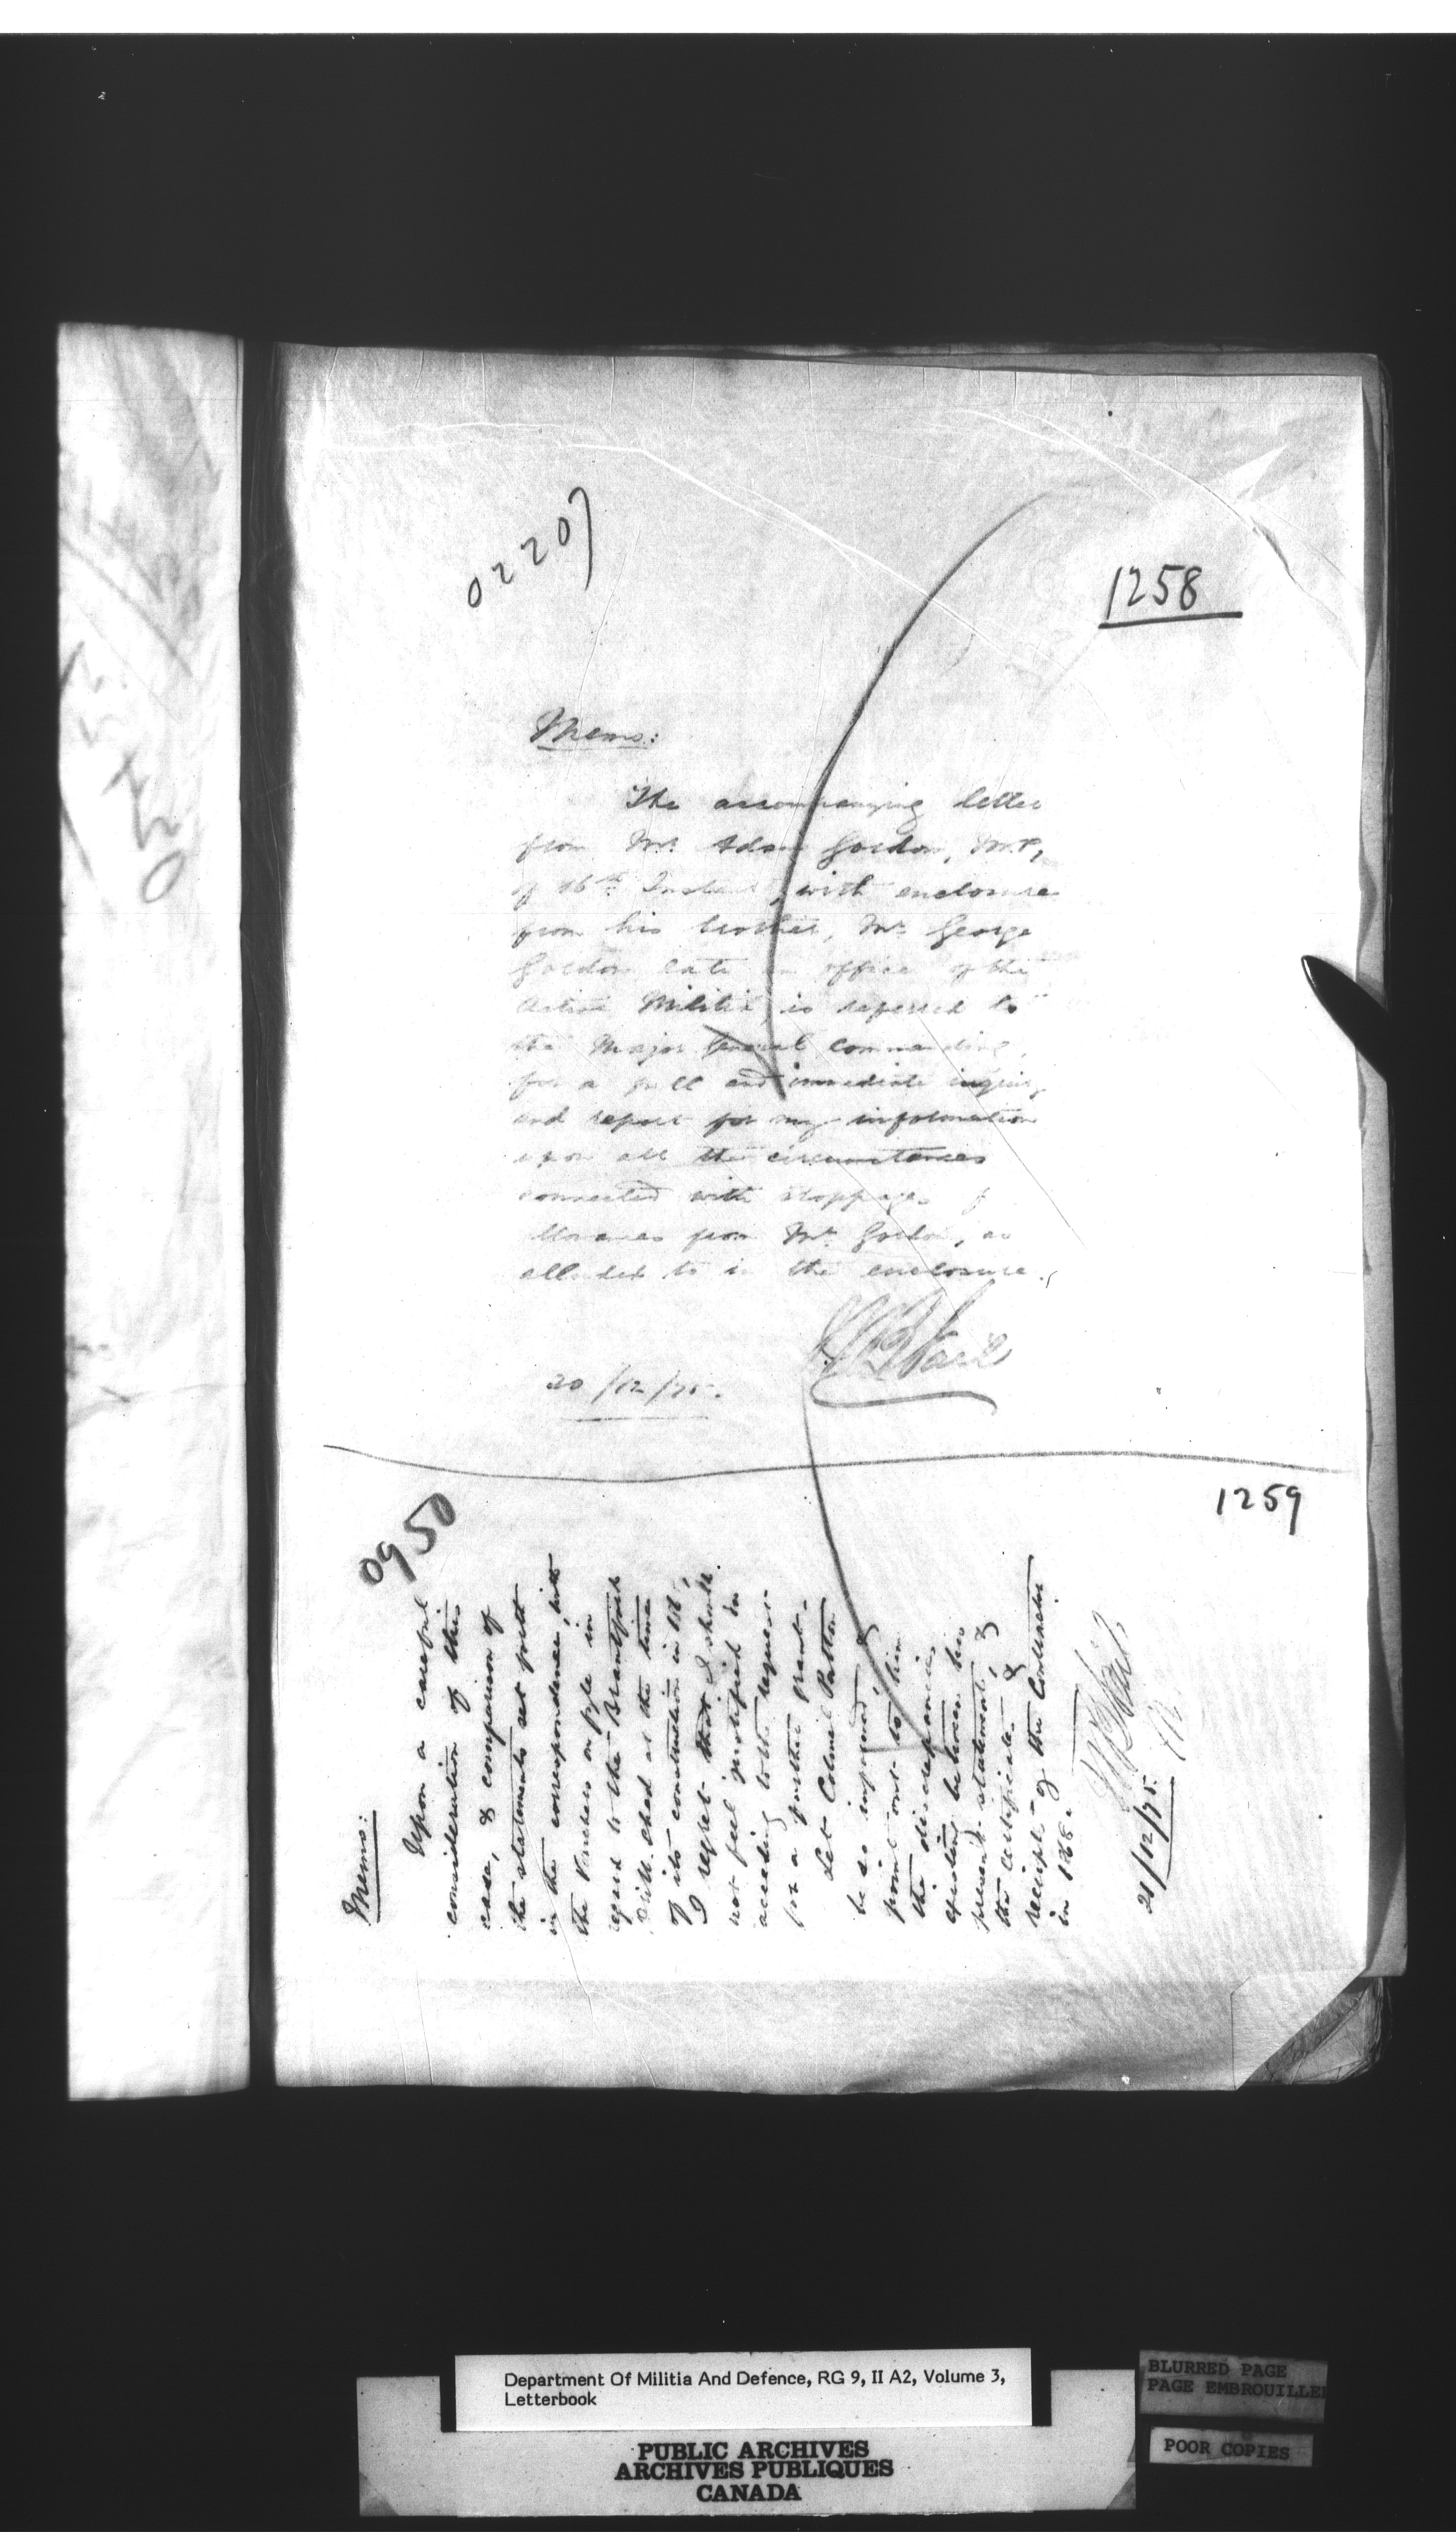 02207
1258
Memo:
The accompanying letter
from Mr. Adam Gordon, M.P,
of 16th Instant, with enclosure
from his brother, Mr George
Gordon late an officer of the
Active Militia, is referred to
the Major General Commanding,
for a full and immediate inquiry
and report for my information
upon all the circumstances
connected with stoppages of
allowances from Mr. Gordon, as
alluded to in the enclosure.
20/12/75.
1259
0950
Memo:
Upon a careful
consideration of this
case, & comparison of
the statements set forth
in the correspondence, with
the Vouchers on fyle in
regard to the Brantford
Drill shed at the time
of its construction in 1868,
I regret that I shall
not feel justified in
acceding to the request
for a further grant.
Let Colonel Patton
be so informed, &
point out to him
the discrepancies
existing between his
present statement, &
the certificate &
receipt of the Contractor
in 1868.
21/12/75.
Department Of Militia And Defence, RG 9, II A2, Volume 3,
Letterbook
PUBLIC ARCHIVES
ARCHIVES PUBLIQUES
CANADA
BLURRED PAGE
PAGE EMBROUILLEE
POOR COPIES